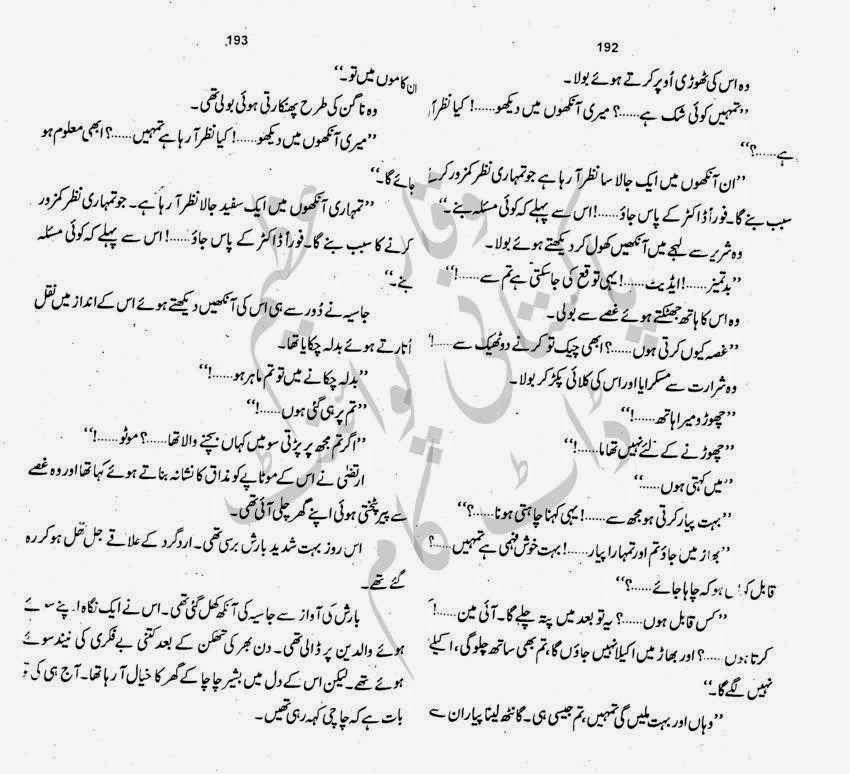 192
وہ اس کی ٹھوڑی اُوپر کرتے ہوئے بولا۔
’’تمہیں کوئی شک ہے......؟ میری آنکھوں میں دیکھو......! کیا نظر آ
ہے......؟‘‘
’’ان آنکھوں میں ایک جالا سا نظر آ رہا ہے جو تمہاری نظر کمزور کر
سبب بنے گا۔ فوراً ڈاکٹر کے پاس جاؤ......! اس سے پہلے کہ کوئی مسئلہ بنے۔‘‘
وہ شریر سے لہجے میں آنکھیں کھول کر دیکھتے ہوئے بولا۔
’’بدتمیز......! ایڈیٹ......! یہی توقع کی جا سکتی ہے تم سے......!‘‘
وہ اس کا ہاتھ جھٹکتے ہوئے غصے سے بولی۔
’’غصہ کیوں کرتی ہوں......؟ ابھی چیک تو کرنے دو ٹھیک سے......!
وہ شرارت سے مسکرایا اور اس کی کلائی پکڑ کر بولا۔
’’چھوڑو میرا ہاتھ......!‘‘
’’چھوڑنے کے لئے نہیں تھاما......!‘‘
’’میں کہتی ہوں......:‘‘
’’بہت پیار کرتی ہو مجھ سے......! یہی کہنا چاہتی ہو نا......؟‘‘
’’بھاڑ میں جاؤ تم اور تمہارا پیار......! بہت خوش فہمی ہے تمہیں......؟
قابل ہو کہ چاہا جائے......؟‘‘
’’کس قابل ہوں......؟ یہ تو بعد میں پتہ چلے گا۔ آئی مین......!
کرتا ہوں......؟ اور بھاڑ میں اکیلا نہیں جاؤں گا، تم بھی ساتھ چلو گی، اکیلے
نہیں لگے گا۔‘‘
’’وہاں اور بہت ملیں گی تمہیں، تم جیسی ہی۔ گانٹھ لینا پیار ان سے
193
ان کاموں میں تو۔‘‘
وہ ناگن کی طرح پھنکارتی ہوئی بولی تھی۔
’’میری آنکھوں میں دیکھو......! کیا نظر آ رہا ہے تمہیں......؟ ابھی معلوم ہو
جائے گا۔‘‘
’’تمہاری آنکھوں میں ایک سفید جالا نظر آ رہا ہے۔ جو تمہاری نظر کمزور
کرنے کا سبب بنے گا۔ فوراً ڈاکٹر کے پاس جاؤ......! اس سے پہلے کہ کوئی مسئلہ
بنے۔‘‘
جاسیہ نے دُور سے ہی اس کی آنکھیں دیکھتے ہوئے اس کے انداز میں نقل
اُتارتے ہوئے بدلہ چکایا تھا۔
’’بدلہ چکانے میں تو تم ماہر ہو......!‘‘
’’تم پر ہی گئی ہوں......!‘‘
’’اگر تم مجھ پر پڑتی سو میں کہاں بچنے والا تھا......؟ موٹو......!‘‘
ارتضٰی نے اس کے موٹاپے کو مذاق کا نشانہ بناتے ہوئے کہا تھا اور وہ غصے
سے پیر پٹختی ہوئی اپنے گھر چلی آئی تھی۔
اس روز بہت شدید بارش برسی تھی۔ اردگرد کے علاقے جل تھل ہو کر رہ
گئے تھے۔
بارش کی آواز سے جاسیہ کی آنکھ کھل گئی تھی۔ اس نے ایک نگاہ اپنے سوئے
ہوئے والدین پر ڈالی تھی۔ دن بھر کی تھکن کے بعد کتنی بے فکری کی نیند سوئے
ہوئے تھے۔ لیکن اس کے دل میں بشیر چاچا کے گھر کا خیال آ رہا تھا۔ آج ہی کی تو
بات ہے کہ چاچی کہہ رہی تھیں۔
وقار عظیم
پاکستانی پوائنٹ
ڈاٹ کام